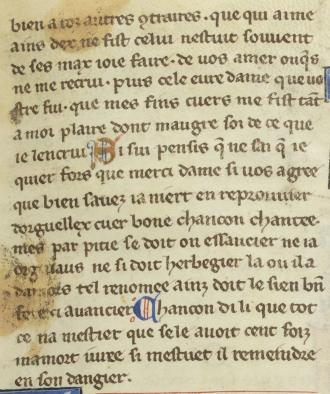 bien a toz autres ꝯtraires · que qui aime
ains dex ne fist celui nestuit souuent
de ses max ioie faire · de vos amer onq̄s
ne me recrui · puis cele eure dame que uo
stre fui · que mes fins cuers me fist tāt
a moi plaire dont maugre soi de ce que
ie lencrui Si sui pensis q̄ ne sai q̄ ie
quier fors que merci dame si vos agree
que bien sauez ia niert en reprouuier
dorguellex cuer bone chancon chantee ·
mes par pitie se doit on essaucier ne ia
orguiaus ne si doit herbegier la ou il a
tel renomee ainz doit le sien bn̄
auancier Chancon di li que tot
ce na mestier que sele auoit cent foiz
ma mort iuree si mestuet il remeindre
en son dangier ·